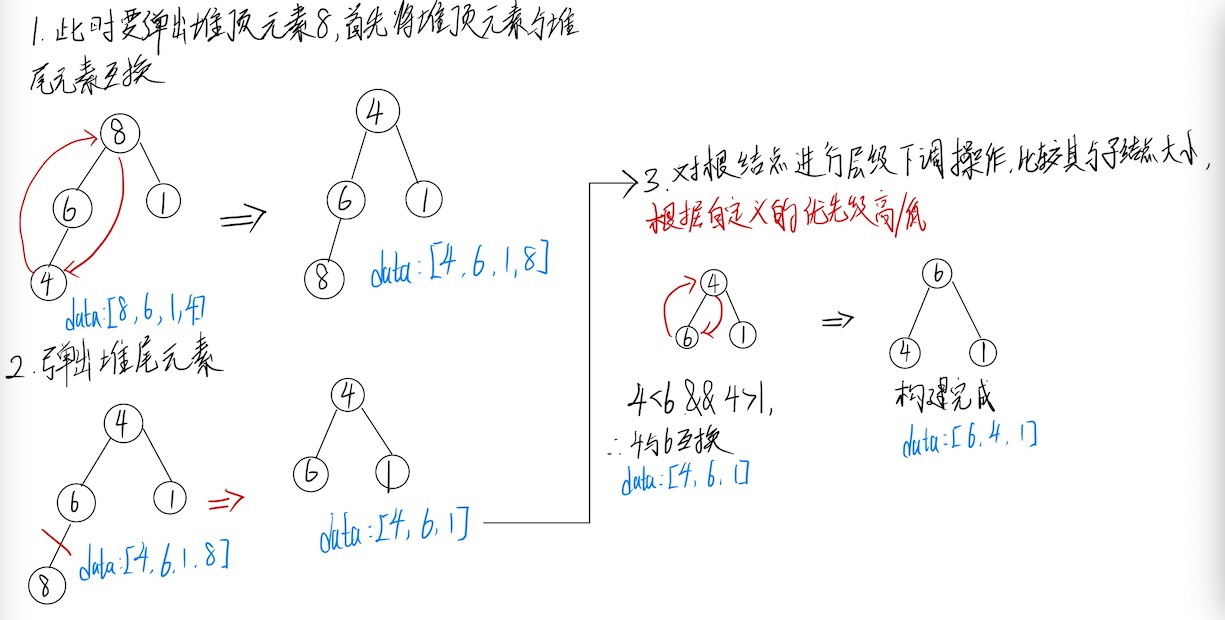 1. 此时要弹出堆顶元素8,首先将堆顶元素与堆
尾元素互换
8
6
1
4
data:[8,6,1,4]
⇒
4
6
1
8
data:[4,6,1,8]
2.弹出堆尾元素
4
6
1
8
data:[4,6,1,8]
⇒
4
6
1
data:[4,6,1]
3.对根结点进行层级下调操作,比较其与子结点大小,
根据自定义的优先级高/低
4
6
1
4<6 && 4>1,
∴4与6互换
data:[4,6,1]
⇒
6
4
1
构建完成
data:[6,4,1]